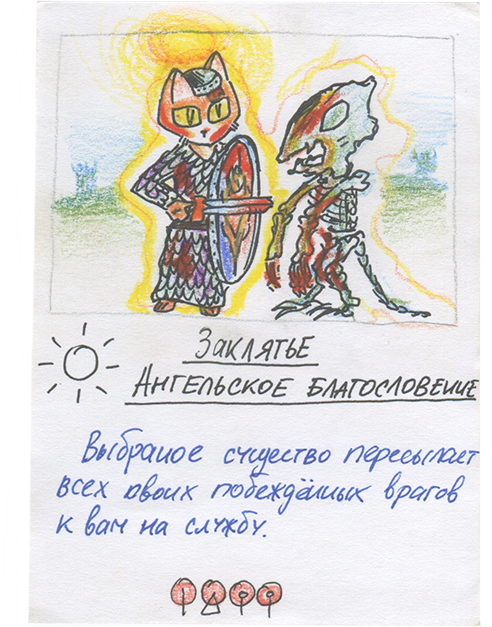 Заклятье
Ангельское благословение
Выбраное существо пересылает
всех своих побеждённых врагов
к вам на службу.